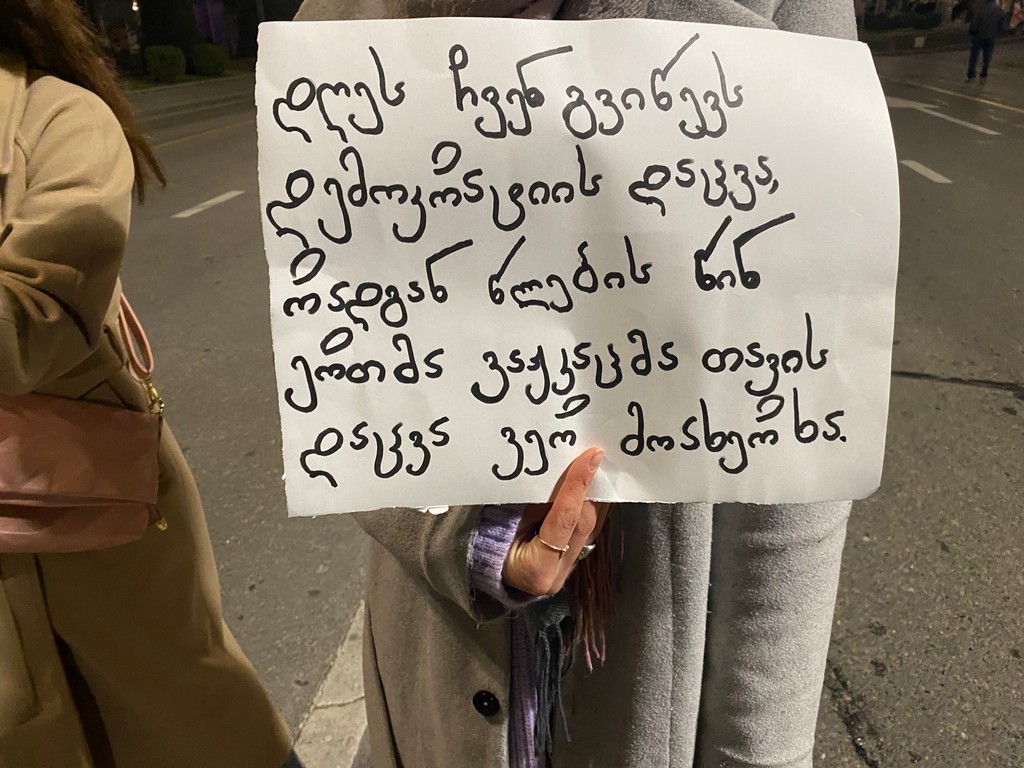 დღეს ჩვენ გვიწევს
დემოკრატიის დაცვა,
რადგან წლების წინ
ერთმა ვაჟკაცმა თავის
დაცვა ვერ მოახერხა.